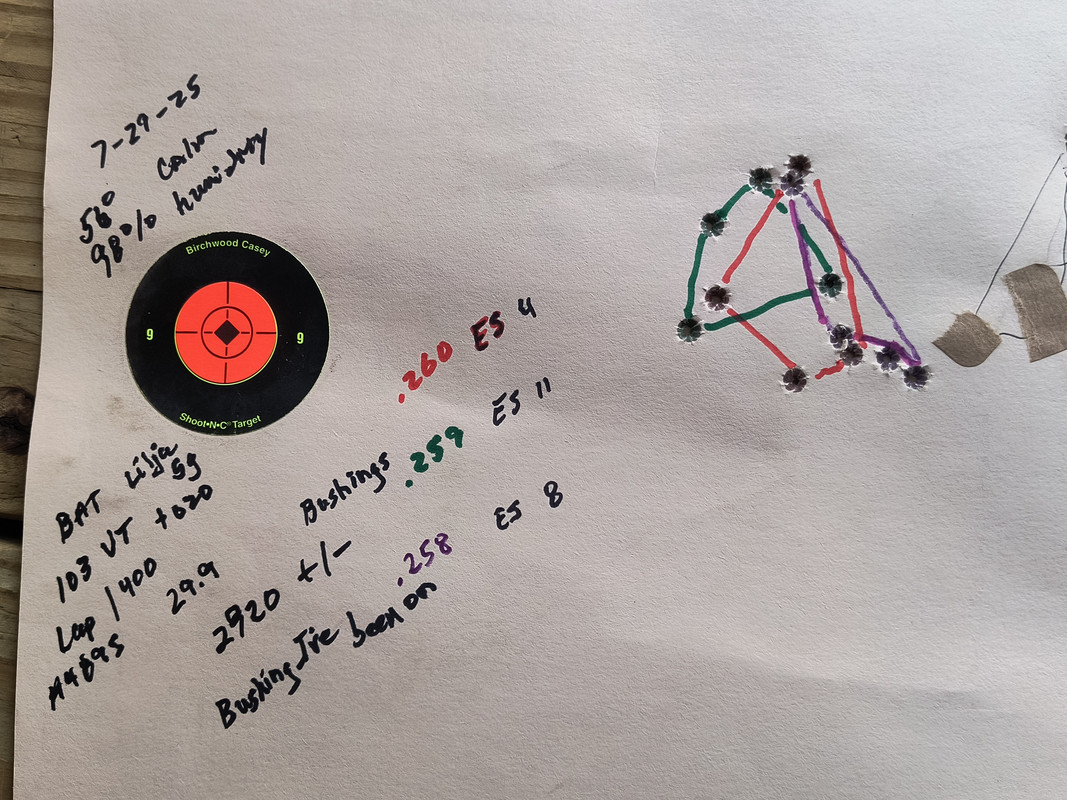 7-29-25
56° Calm
98% humidity
Birchwood Casey
9 9
Shoot•N•C® Target
.260 ES 4
Bushings .259 ES 11
.258 ES 8
BAT Lilja
103 VT +020
Lap / 400 29.9
2920 +/-
Bushing I've been on